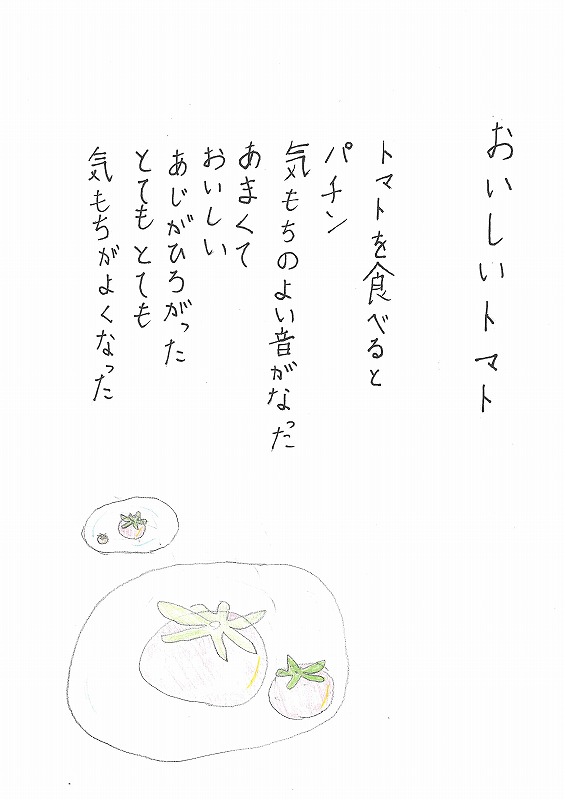 おいしいトマト
トマトを食べると
パチン
気もちのよい音がなった
あまくて
おいしい
あじがひろがった
とてもとても
気もちがよくなった